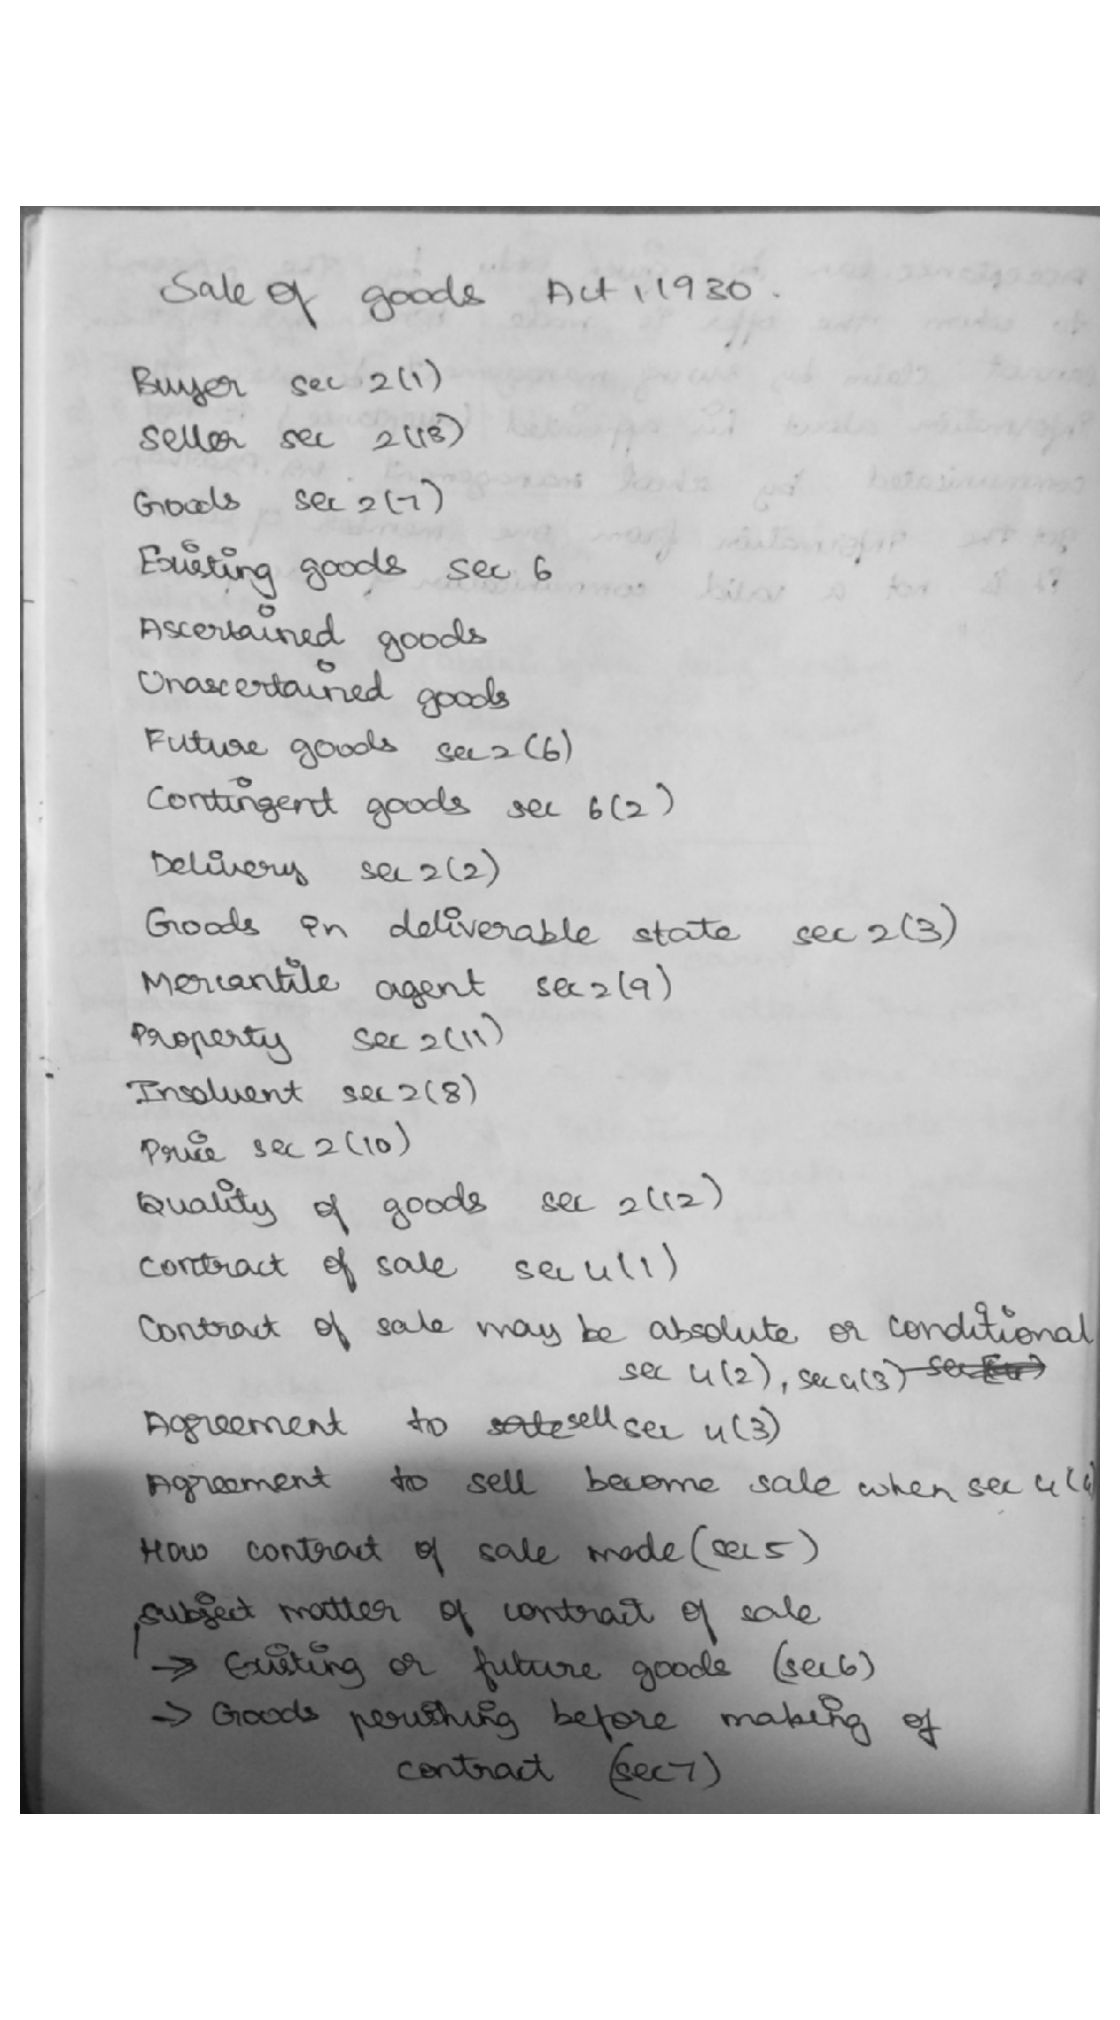 Sale of goods Act, 1930.
Buyer sec 2(1)
Seller sec 2(13)
Goods sec 2(7)
Existing goods sec 6
Ascertained goods
Unascertained goods
Future goods sec 2(6)
Contingent goods sec 6(2)
Delivery sec 2(2)
Goods in deliverable state sec 2(3)
Mercantile agent sec 2(9)
Property sec 2(11)
Insolvent sec 2(8)
Price sec 2(10)
Quality of goods sec 2(12)
Contract of sale sec 4(1)
Contract of sale may be absolute or conditional
sec 4(2), sec 4(3)
Agreement to sell sec 4(3)
Agreement to sell become sale when sec 4(4
How contract of sale made (sec 5)
Subject matter of contract of sale
→ Existing or future goods (sec 6)
→ Goods perishing before making of
contract (sec 7)